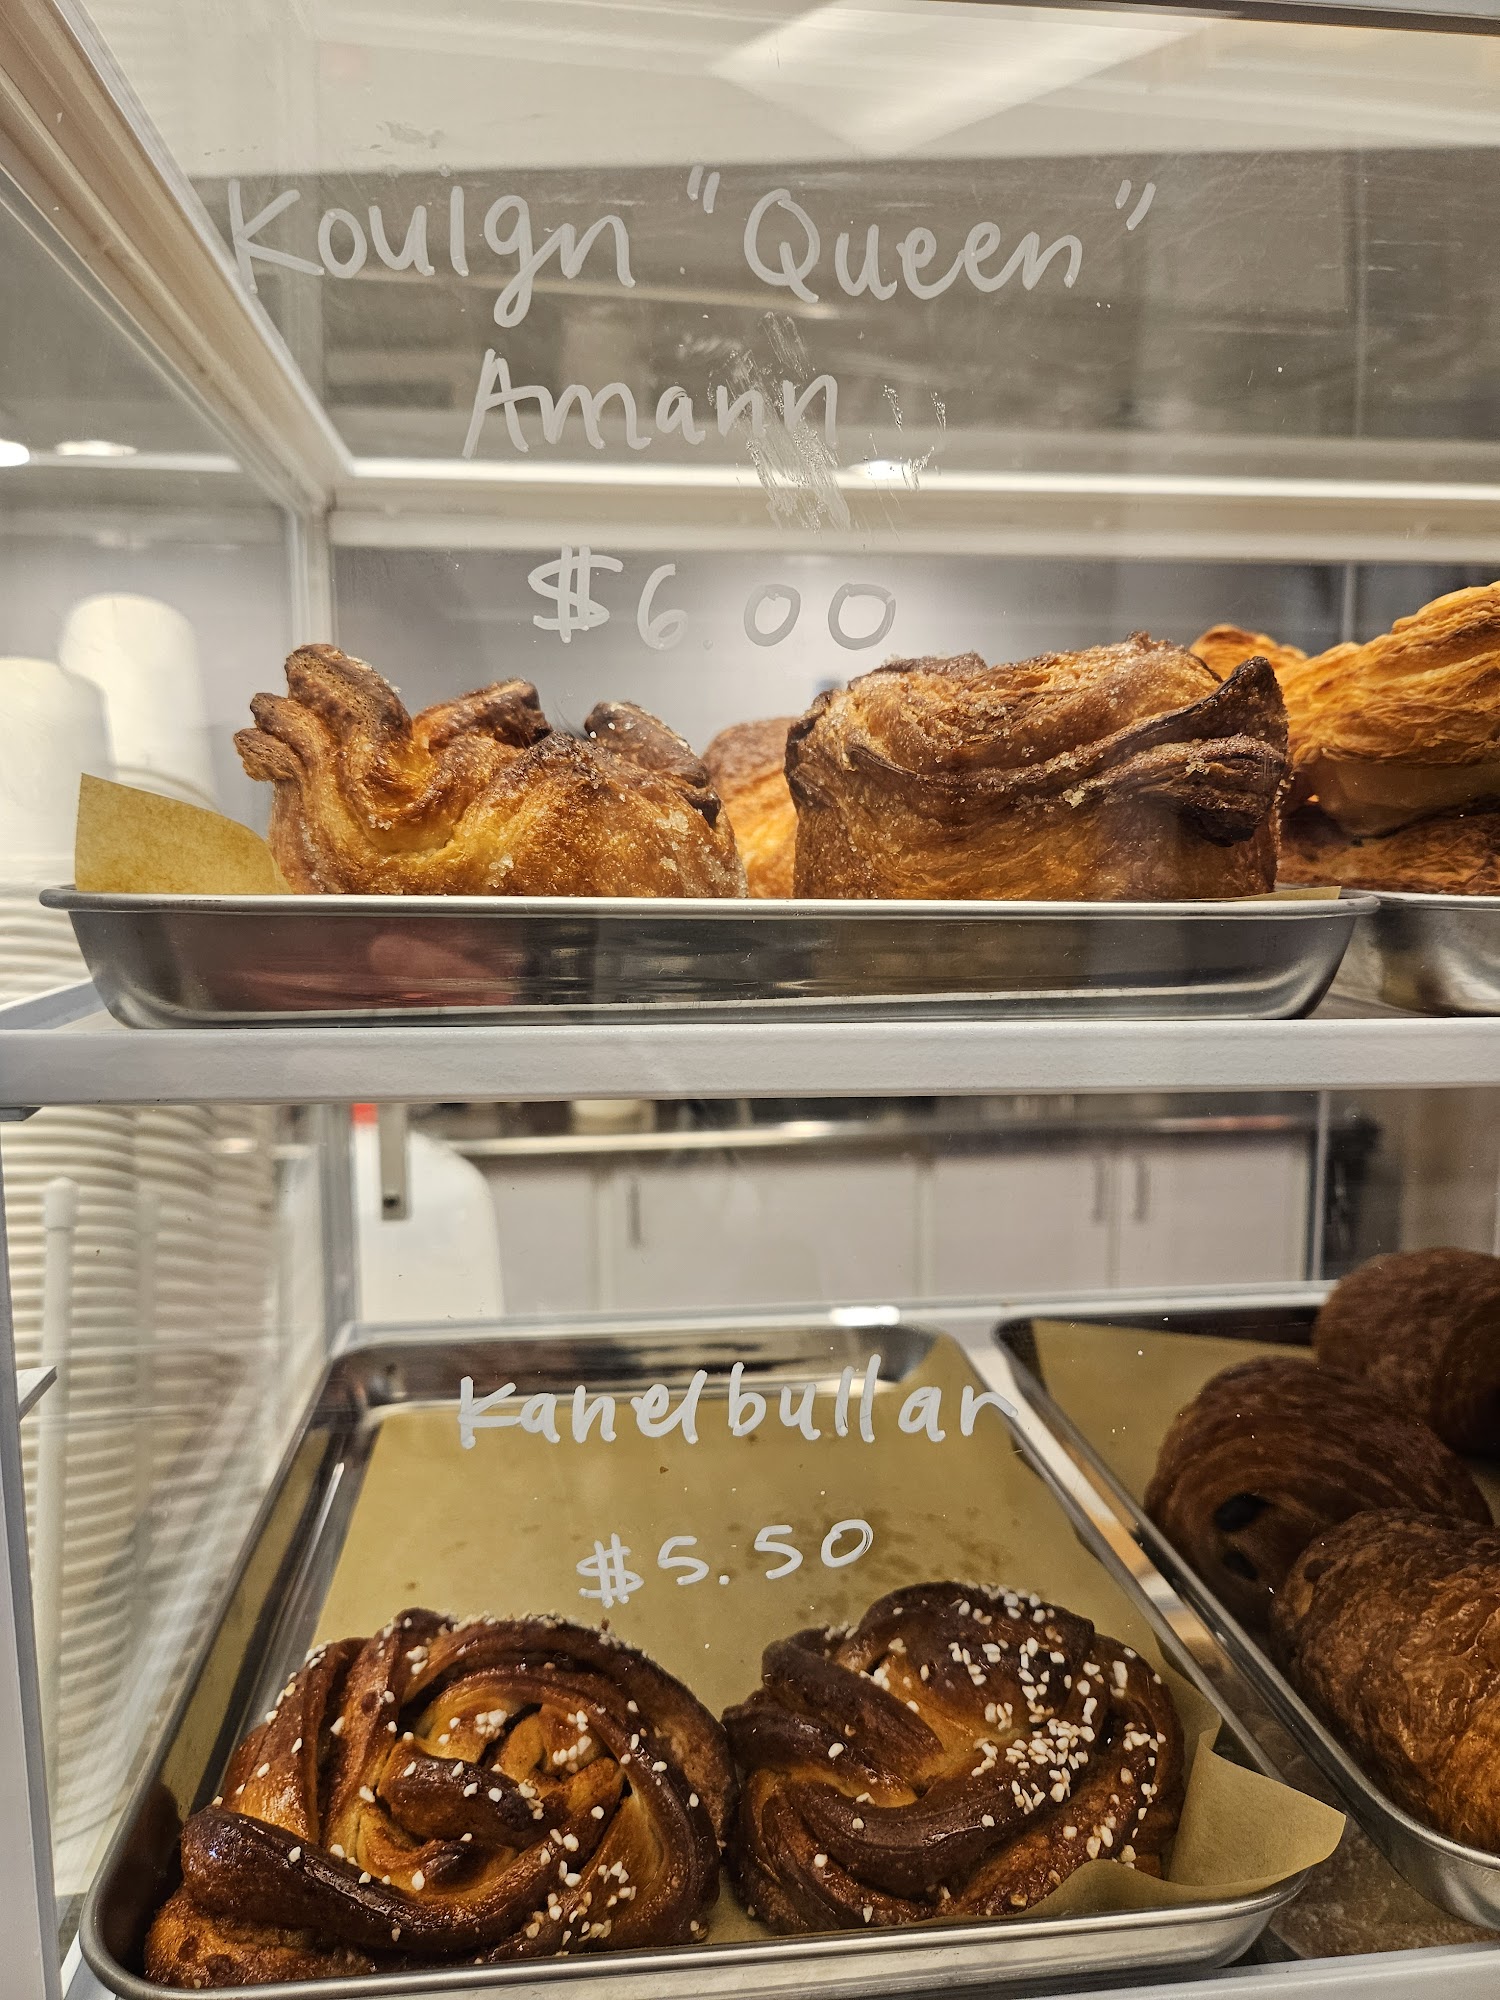 Kouign "Queen"
Amann
$6.00
Kanelbullar
$5.50